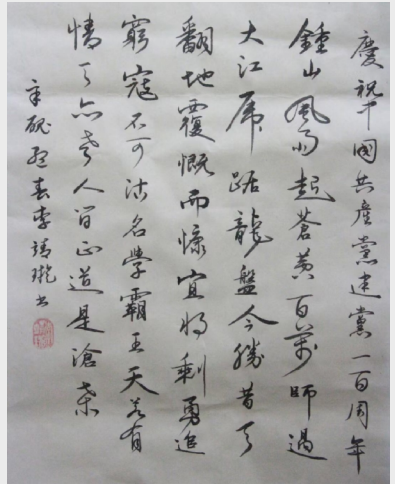 慶祝中國共產黨建黨一百周年
鍾山風雨起蒼黄百萬師過
大江虎踞龍盤今勝昔天
翻地覆慨而慷宜将剩勇追
窮寇不可沽名學霸王天若有
情天亦老人间正道是滄桑
辛醜春李靖书